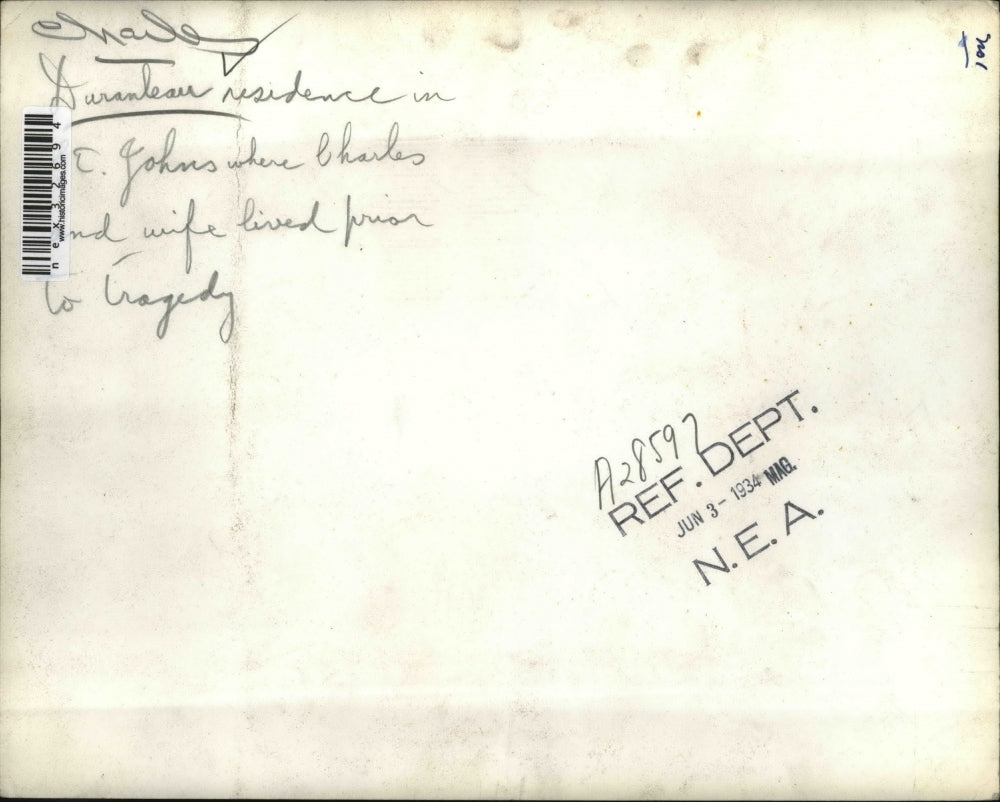 Charles
Duranleau residence in
t. Johns where Charles
nd wife lived prior
to tragedy
nex32694
www.historicimages.com
A28597
REF. DEPT.
JUN 3 - 1934 MAG.
N.E.A.